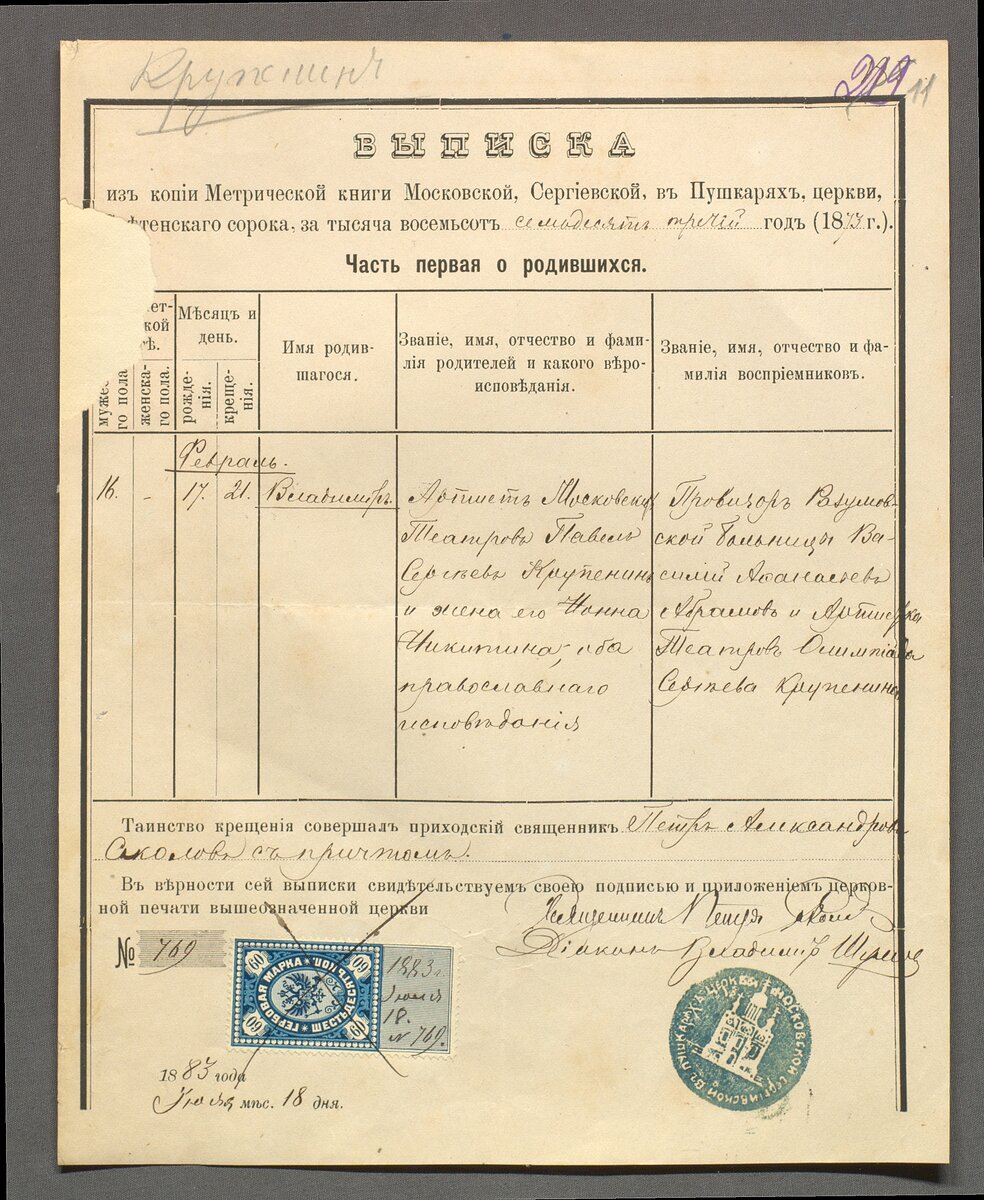 Крупнинъ
219 11
ВЫПИСКА
изъ копіи Метрической книги Московской, Сергіевской, въ Пушкаряхъ, церкви,
тенскаго сорока, за тысяча восемьсотъ семьдесятъ третій годъ (1873 г.).
Часть первая о родившихся.
мужес-
го пола
женска-
го пола.
Мѣсяцъ и
день.
рожде-
нія.
креще-
нія.
Имя родив-
шагося.
Званіе, имя, отчество и фами-
лія родителей и какого вѣро-
исповѣданія.
Званіе, имя, отчество и фа-
милія воспріемниковъ.
Февраль.
16. - 17. 21. Владиміръ.
Артистъ Московскихъ
Театровъ Павелъ
Сергѣевъ Крупенинъ
и жена его Нонна
Никитина, оба
православнаго
исповѣданія
Провизоръ Разумов-
ской больницы Ва-
силій Аѳанасьевъ
Абрамовъ и Артистка
Театровъ Олимпіада
Сергѣева Крупенина
Таинство крещенія совершалъ приходскій священникъ Петръ Александровъ
Соколовъ съ причтомъ.
Въ вѣрности сей выписки свидѣтельствуемъ своею подписью и приложеніемъ церков-
ной печати вышеозначенной церкви
Священникъ Петръ
Діаконъ Владиміръ
№ 769
ГЕРБОВАЯ МАРКА ШЕСТЬДЕСЯТЪ КОП.
60 60 60 60
1883 г.
Іюня
18.
№ 769.
1883 года
Іюня мѣс. 18 дня.
МОСКОВСКОЙ СЕРГІЕВСКОЙ ВЪ ПУШКАРЯХЪ ЦЕРКВИ